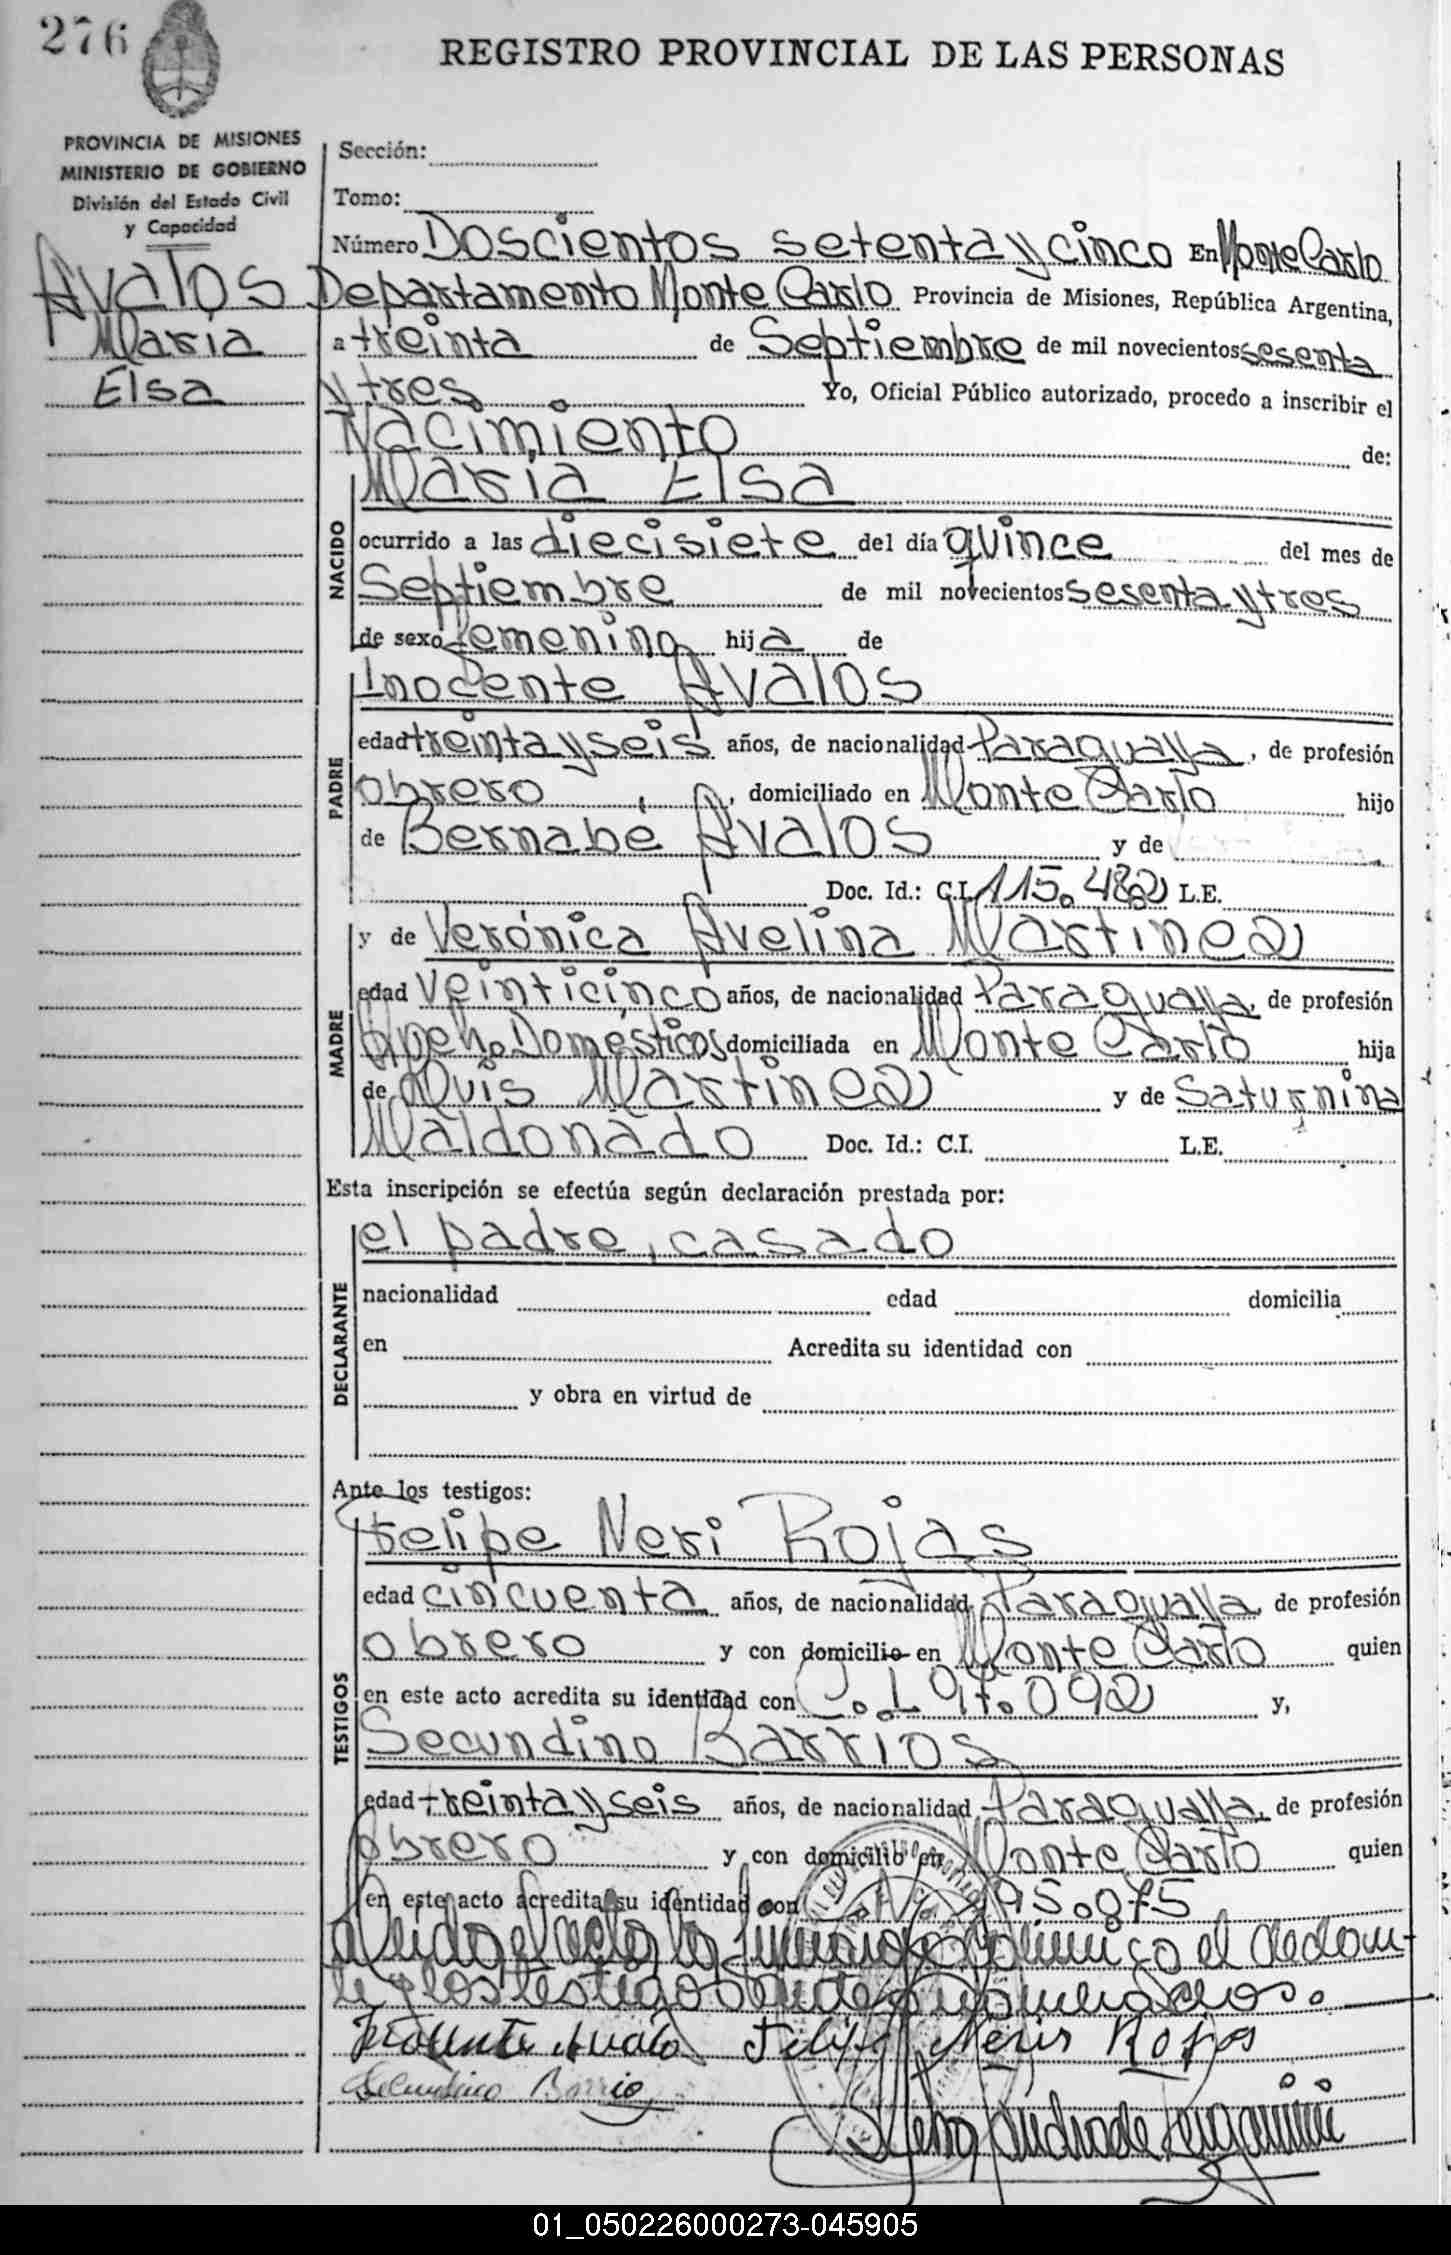 276
REGISTRO PROVINCIAL DE LAS PERSONAS
PROVINCIA DE MISIONES
MINISTERIO DE GOBIERNO
División del Estado Civil
y Capacidad
Avalos
Maria
Elsa
Sección:
Tomo:
Número Doscientos setenta y cinco En Monte Carlo
Departamento Monte Carlo Provincia de Misiones, República Argentina,
a treinta de Septiembre de mil novecientos sesenta
y tres Yo, Oficial Público autorizado, procedo a inscribir el
Nacimiento de:
NACIDO
Maria Elsa
ocurrido a las diecisiete del día quince del mes de
Septiembre de mil novecientos sesenta y tres
de sexo femenino hija de
PADRE
Inocente Avalos
edad treinta y seis años, de nacionalidad Paraguaya, de profesión
obrero, domiciliado en Monte Carlo hijo
de Bernabé Avalos y de
Doc. Id.: C.I. 115.482 L.E.
MADRE
y de Verónica Avelina Martinez
edad veinticinco años, de nacionalidad Paraguaya, de profesión
Domésticos domiciliada en Monte Carlo hija
de Luis Martinez y de Saturnina
Maldonado Doc. Id.: C.I. L.E.
Esta inscripción se efectúa según declaración prestada por:
DECLARANTE
el padre, casado
nacionalidad edad domicilia
en Acredita su identidad con
y obra en virtud de
Ante los testigos:
TESTIGOS
Felipe Neri Rojas
edad cincuenta años, de nacionalidad Paraguaya, de profesión
obrero y con domicilio en Monte Carlo quien
en este acto acredita su identidad con C.I. 97.092 y,
Secundino Barrios
edad treinta y seis años, de nacionalidad Paraguaya, de profesión
obrero y con domicilio en Monte Carlo quien
en este acto acredita su identidad con 195.075
Leida el acta la conmigo el declaran-
te y los testigos antes nombrados.
Inocente Avalo Felipe Neris Rojas
Secundino Barrio
Andrade
01_050226000273-045905